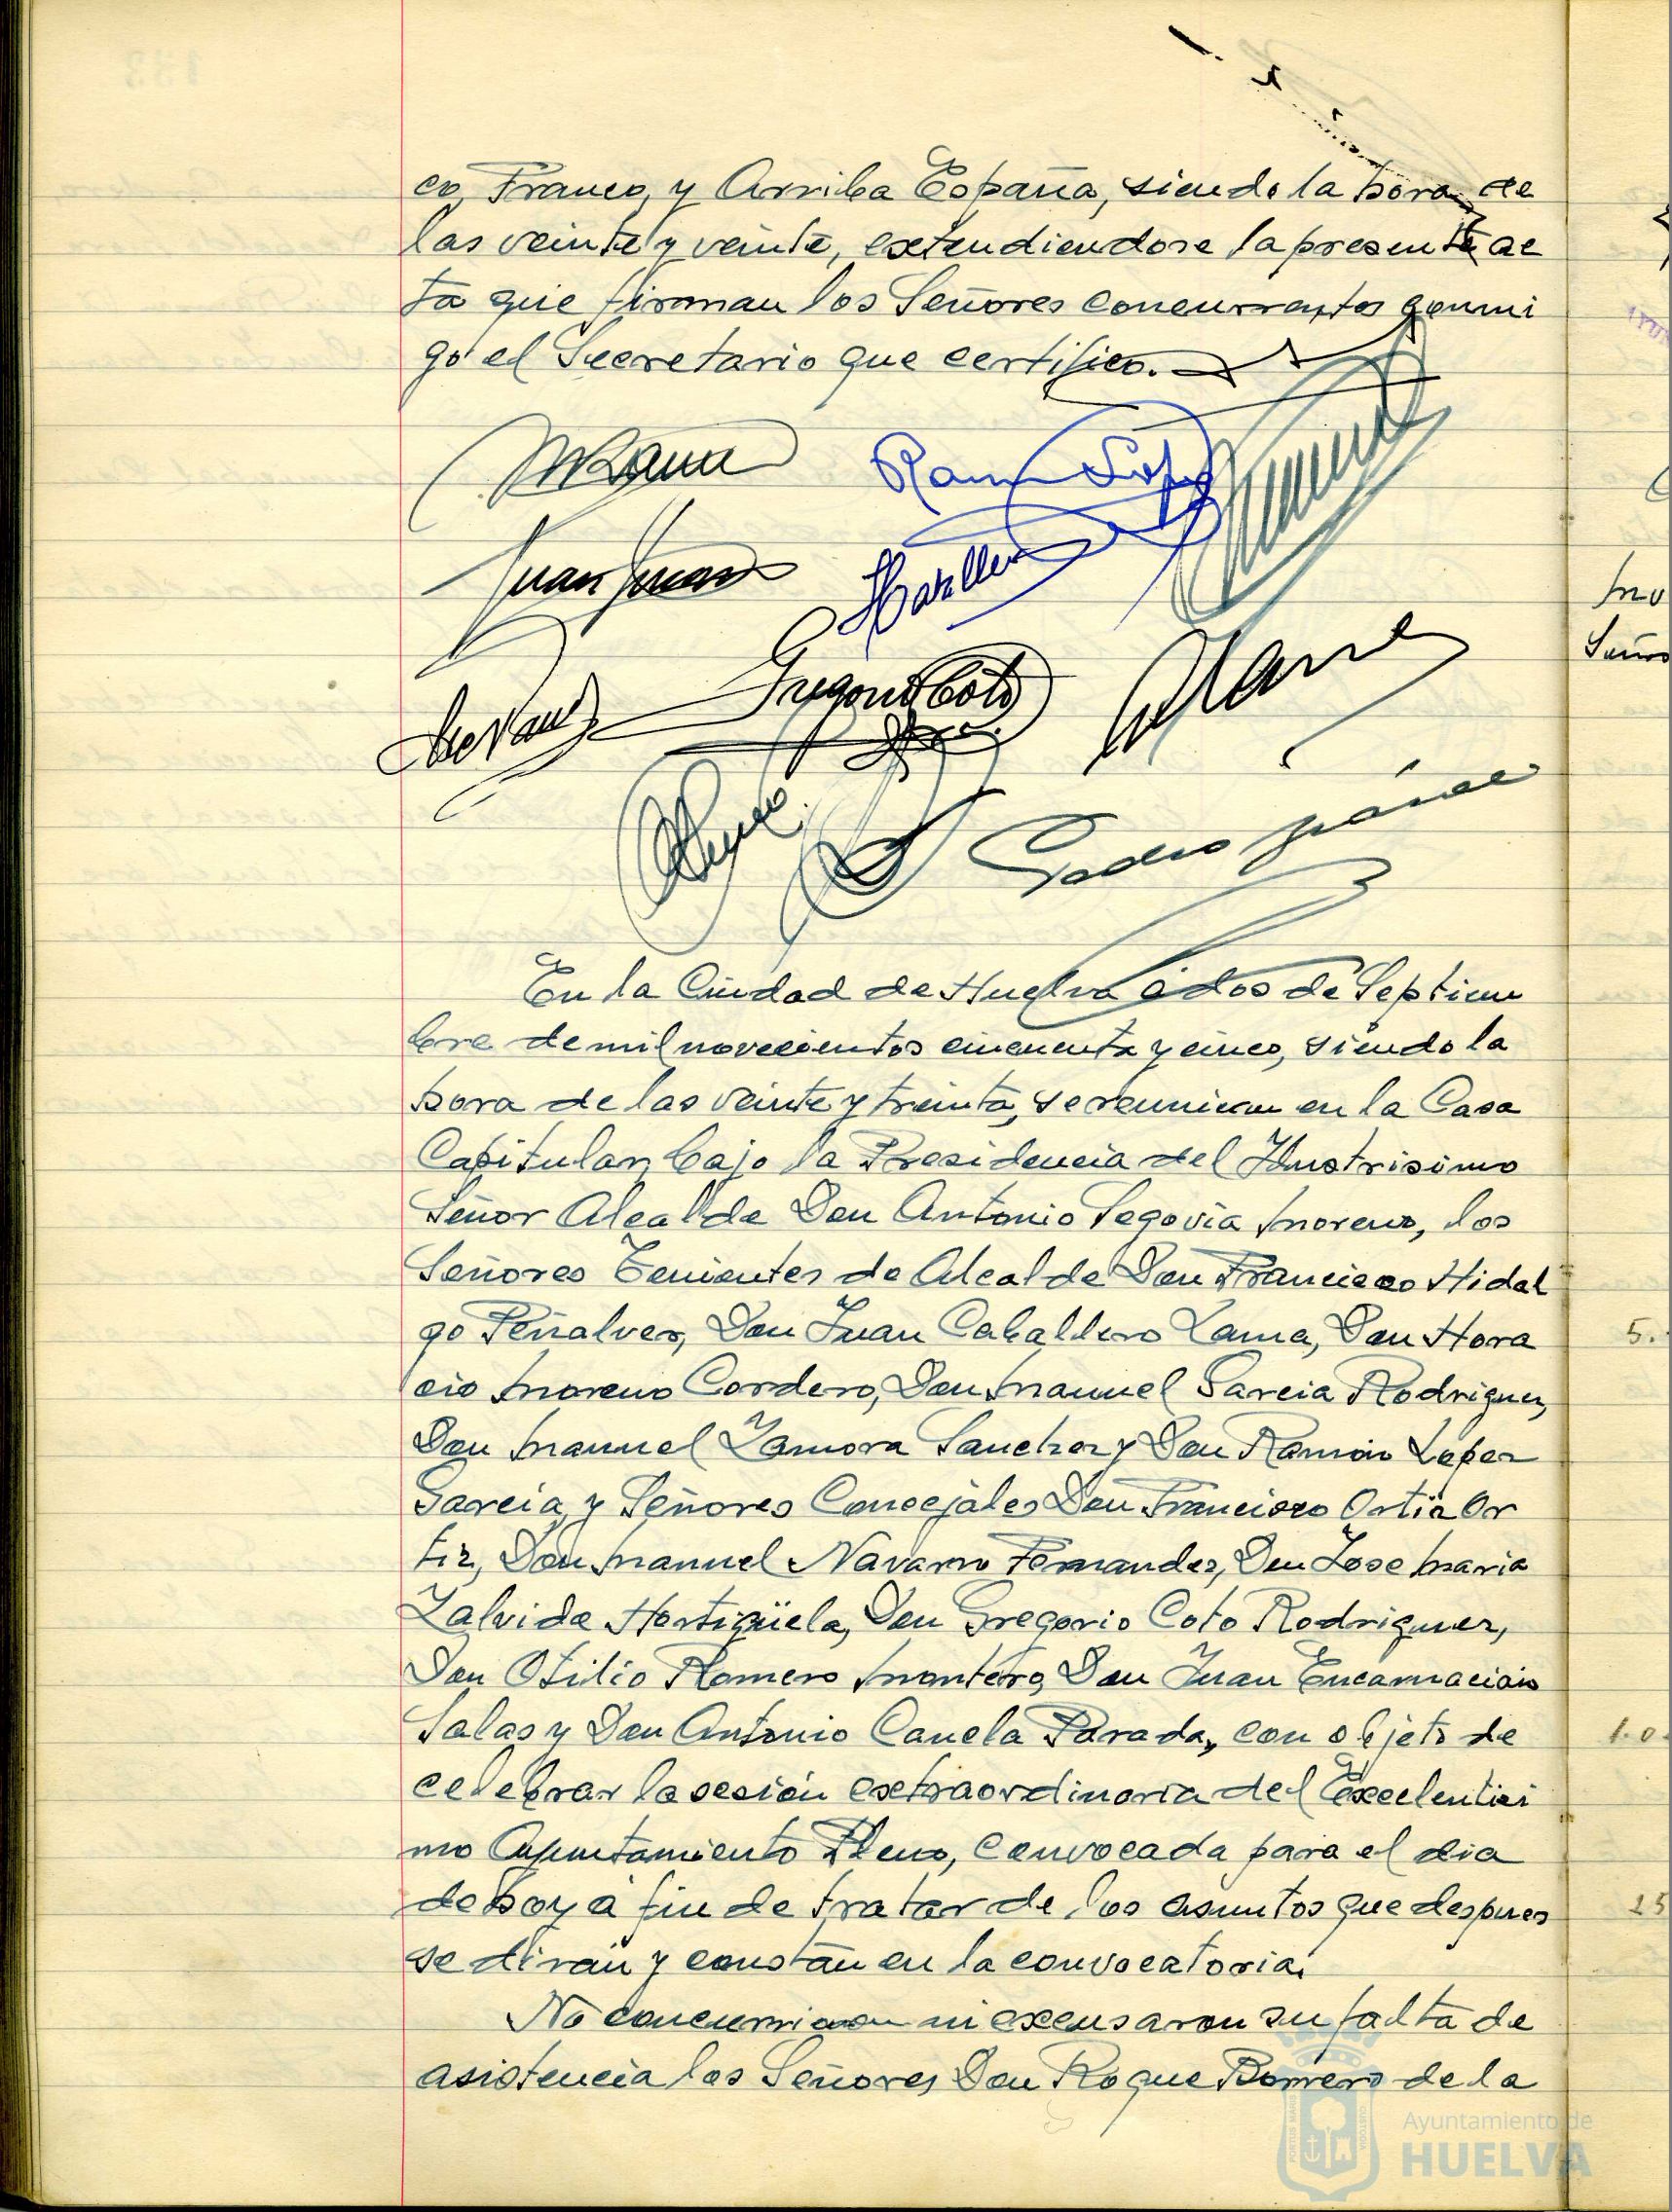 co, Franco, y Arriba España, siendo la hora de
las veinte y veinte, extendiendose la presente ac
ta que firman los Señores concurrentes conmi
go el Secretario que certifico.
Ramon
Juan
Gregorio Coto
Pedro
En la Ciudad de Huelva a dos de Septiem
bre de mil novecientos cincuenta y cinco, siendo la
hora de las veinte y treinta, se reunieron en la Casa
Capitular, bajo la Presidencia del Ilustrisimo
Señor Alcalde Don Antonio Segovia Moreno, los
Señores Tenientes de Alcalde Don Francisco Hidal
go Peñalver, Don Juan Caballero Lama, Don Hora
cio Moreno Cordero, Don Manuel Garcia Rodriguez,
Don Manuel Zamora Sanchez y Don Ramón Lopez
Garcia, y Señores Concejales Don Francisco Ortiz Or
tiz, Don Manuel Navarro Fernandez, Don Jose Maria
Zalvide Hortigüela, Don Gregorio Coto Rodriguez,
Don Otilio Romero Montero, Don Juan Encarnación
Salas y Don Antonio Canela Parada, con objeto de
celebrar la sesión extraordinaria del Excelentisi
mo Ayuntamiento Pleno, convocada para el dia
de hoy a fin de tratar de los asuntos que despues
se diran y constan en la convocatoria.
No concurrieron ni excusaron su falta de
asistencia los Señores Don Roque Borrero de la
Ayuntamiento de
HUELVA